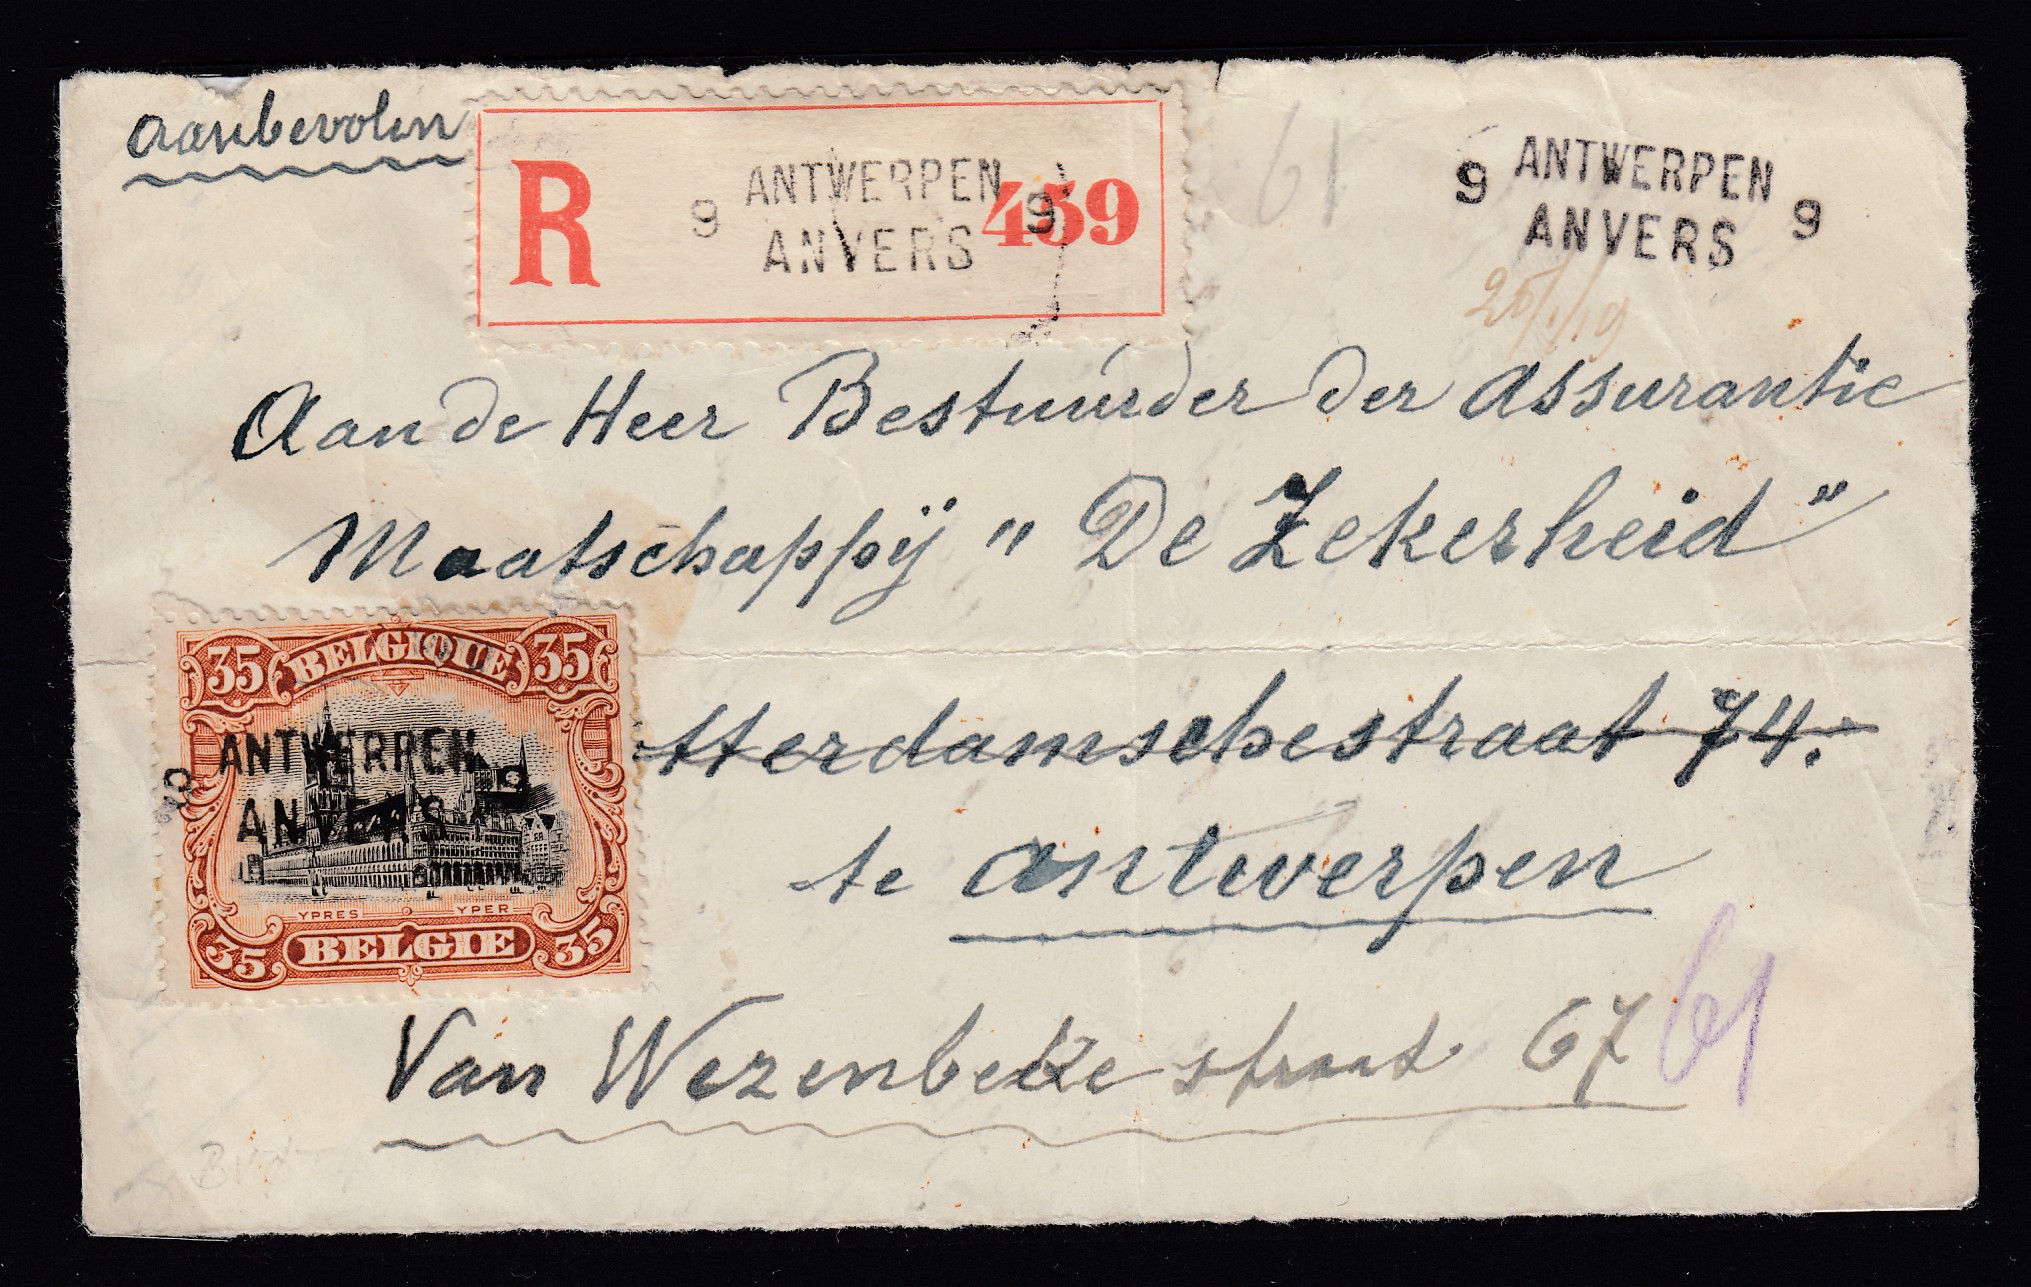 Aanbevolen
R
ANTWERPEN
9 9
ANVERS
459
61
ANTWERPEN
9 9
ANVERS
25/1/19
Aan de Heer Bestuurder der Assurantie
Maatschappij "De Zekerheid"
35 BELGIQUE 35
ANTWERPEN
9 9
ANVERS
YPRES YPER
35 BELGIE 35
tterdamschestraat 74.
te Antwerpen
Van Wezenbeke straat 67
61